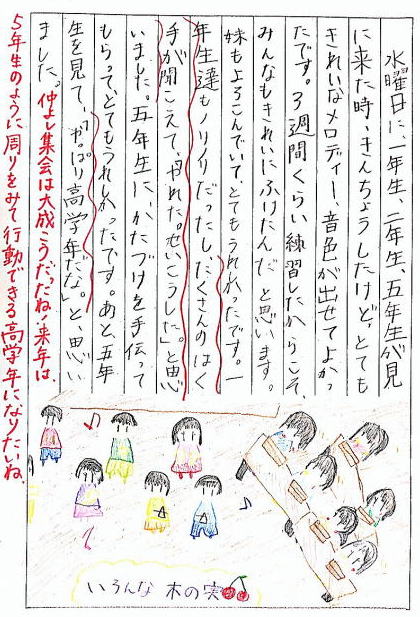 水曜日に、一年生、二年生、五年生が見
に来た時、きんちょうしたけど、とても
きれいなメロディー、音色が出せてよかっ
たです。3週間くらい練習したからこそ、
みんなもきれいにふけたんだと思います。
妹もよろこんでいてとてもうれしかったです。一
年生達もノリノリだったしたくさんのはく
手が聞こえて、「やれた。せいこうした。」と思
いました。五年生に、かたづけを手伝って
もらって、とてもうれしかったです。あと五年
生を見て、「やっぱり高学年だな。」と、思い
ました。
仲よし集会は大成こうだったね!来年は、
5年生のように周りをみて行動できる高学年になりたいね。
いろんな木の実